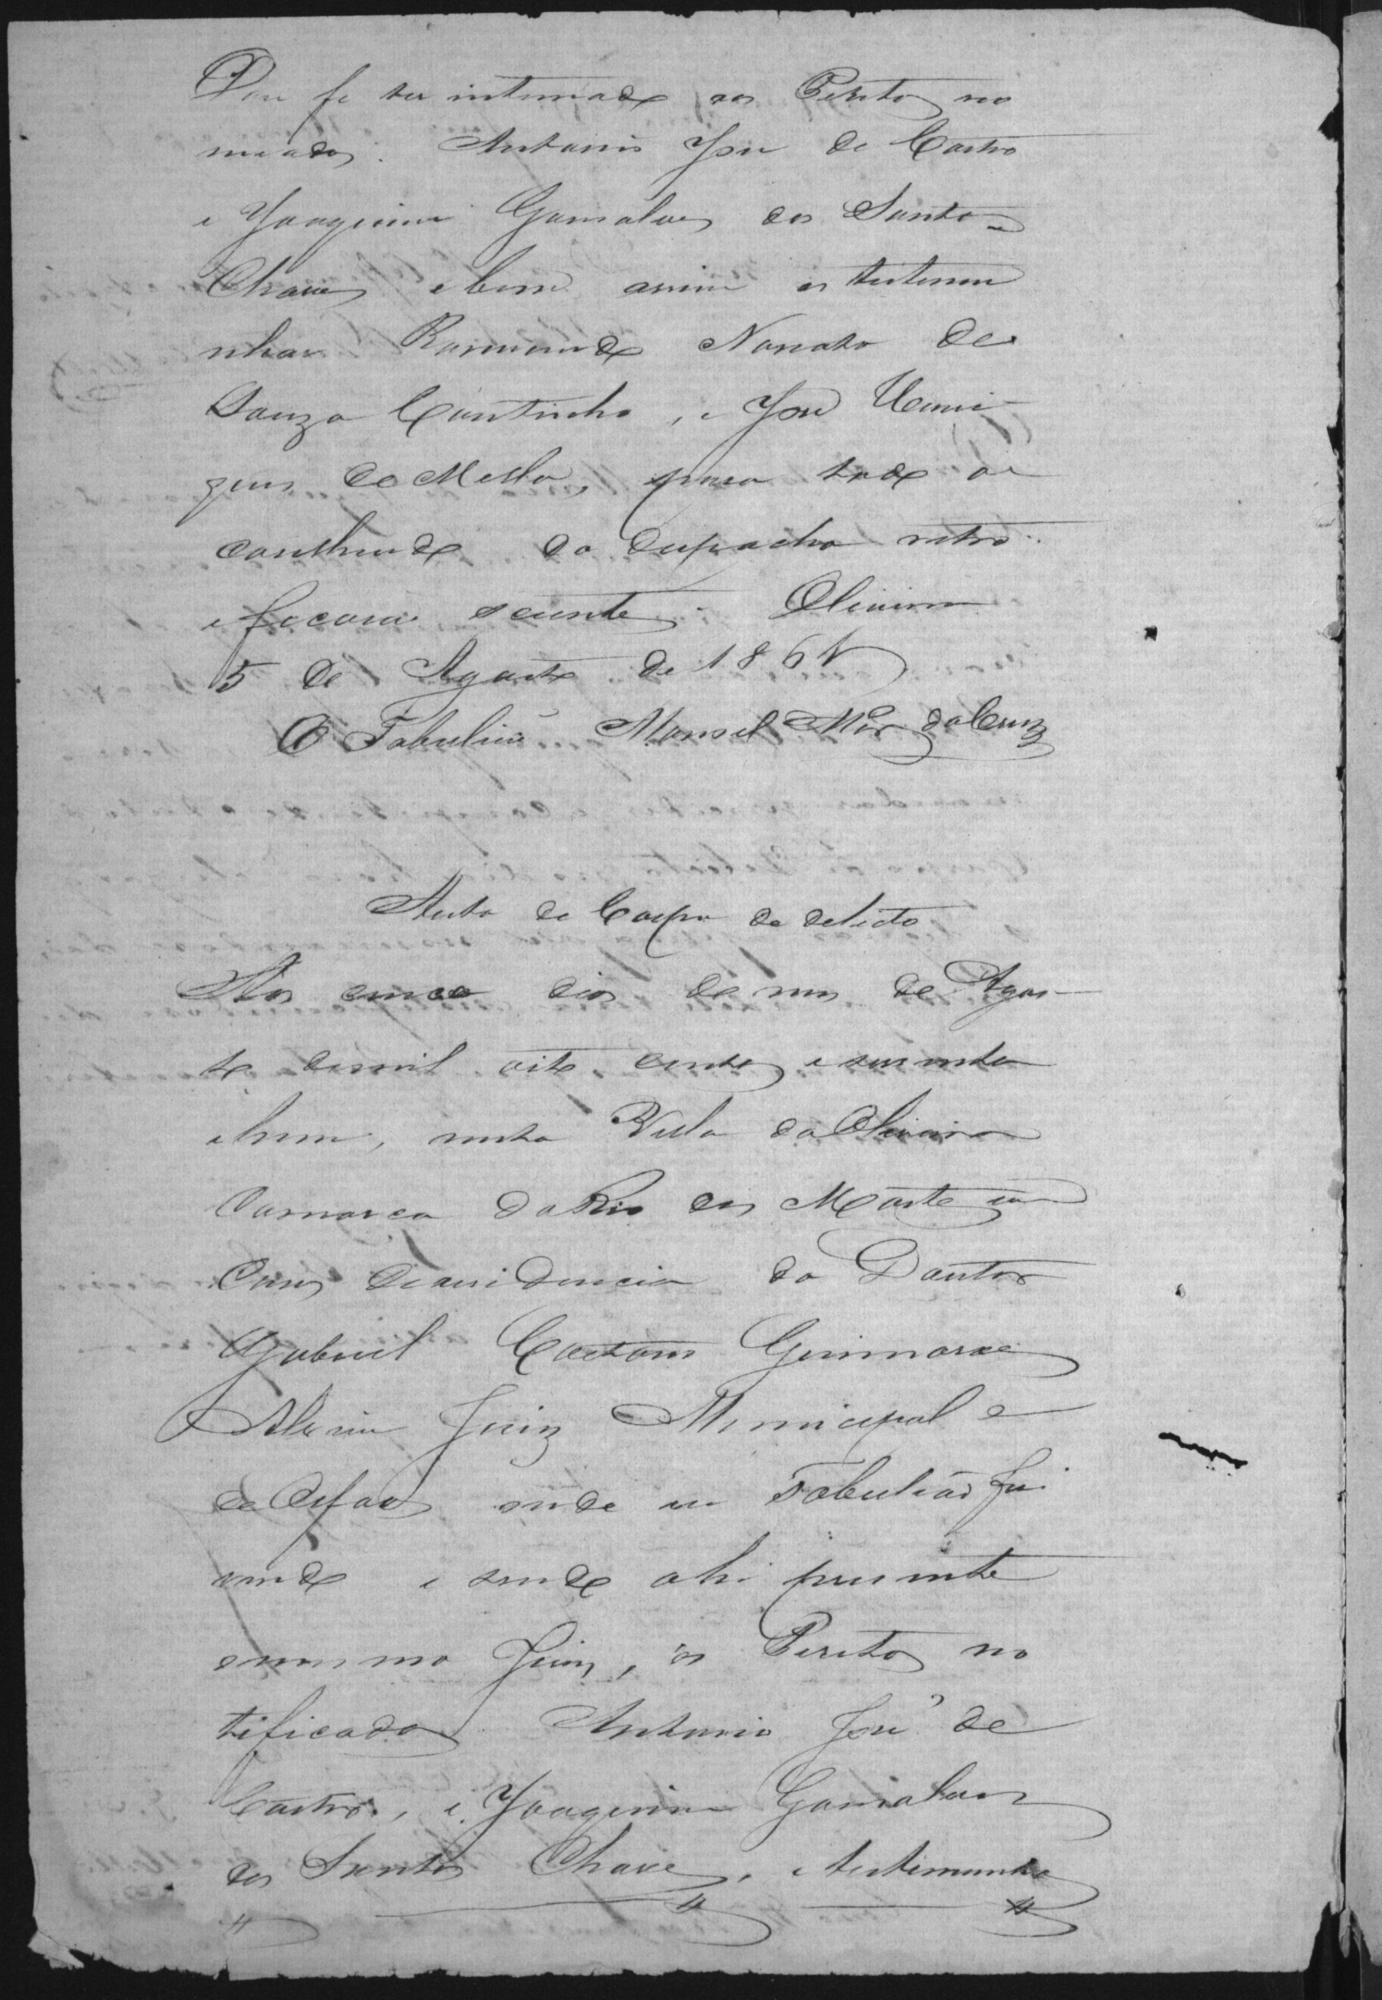 Dou fé ter intimado aos Peritos no
meados. Antonio José de Castro
e Joaquim Gonsalves dos Santos
Chaves e bem assim as testemu
nhas Raimundo Nonato de
Souza Coutinho, e José Henri-
ques de Mello, para todo o
contheudo do despacho retro
e ficarão scientes. Oliveira
5 de Agosto de 1861
O Tabelião Manoel da Cruz
Auto de Corpo de delicto
Aos cinco dias do mes de Agos-
to de mil oito centos e secenta
e hum, nesta Villa da Oliveira
Comarca do Rio das Mortes em
Casas de residencia do Doutor
Gabriel Caetano Guimaraes
Alvim Juiz Municipal e
de Orfaos onde eu Tabelião fui
vindo e sendo ahi presente
o mesmo Juiz, os Peritos no
tificados Antonio José de
Castro, e Joaquim Gonsalves
dos Santos Chaves, e testemunhas